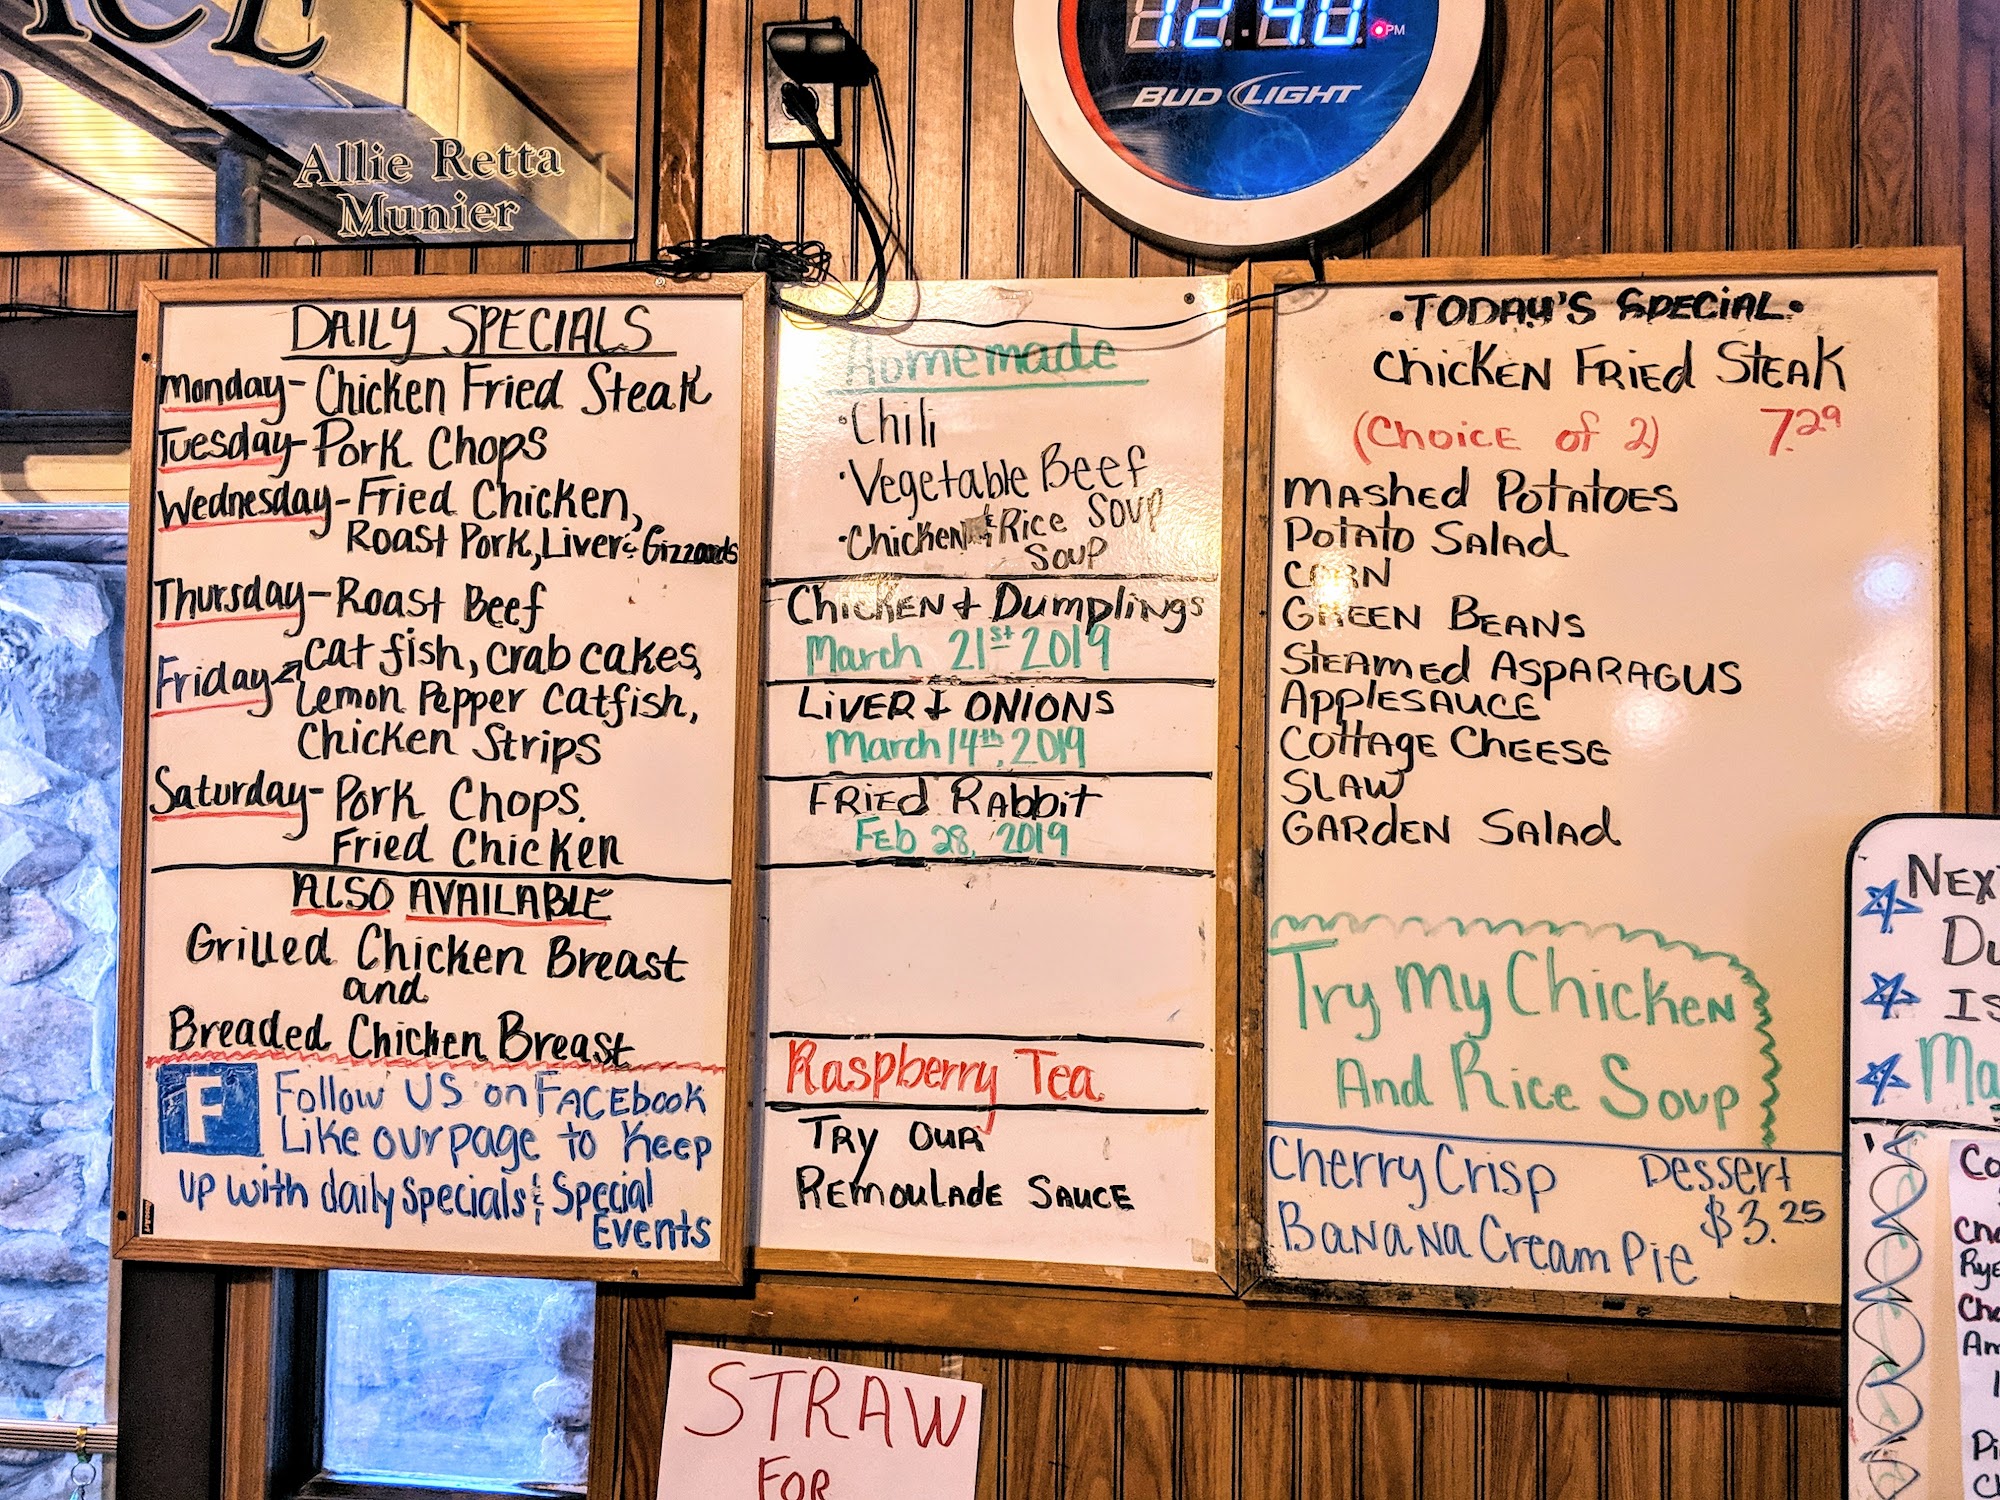 Allie Retta
Munier
12:40 PM
BUD LIGHT
DAILY SPECIALS
Monday- Chicken Fried Steak
Tuesday- Pork Chops
Wednesday- Fried Chicken,
Roast Pork, Liver & Gizzards
Thursday- Roast Beef
Friday- Catfish, Crab cakes,
Lemon Pepper Catfish,
Chicken Strips
Saturday- Pork Chops.
Fried Chicken
ALSO AVAILABLE
Grilled Chicken Breast
and
Breaded Chicken Breast
F Follow US on FACEbook
Like our page to Keep
up with daily specials & Special
Events
Homemade
·Chili
·Vegetable Beef
Soup
·Chicken & Rice
Soup
CHICKEN & Dumplings
March 21st 2019
LIVER & ONIONS
March 14th, 2019
FRIED RABBIT
FEB 28, 2019
Raspberry Tea
TRY OUR
REMOULADE SAUCE
·TODAY'S SPECIAL·
CHICKEN FRIED STEAK
(CHOICE of 2) 7.29
MASHED POTATOES
POTATO SALAD
CORN
GREEN BEANS
STEAMED ASPARAGUS
APPLESAUCE
COTTAGE CHEESE
SLAW
GARDEN SALAD
Try My Chicken
And Rice Soup
Cherry Crisp Dessert
BANANA Cream Pie $3.25
STRAW
FOR